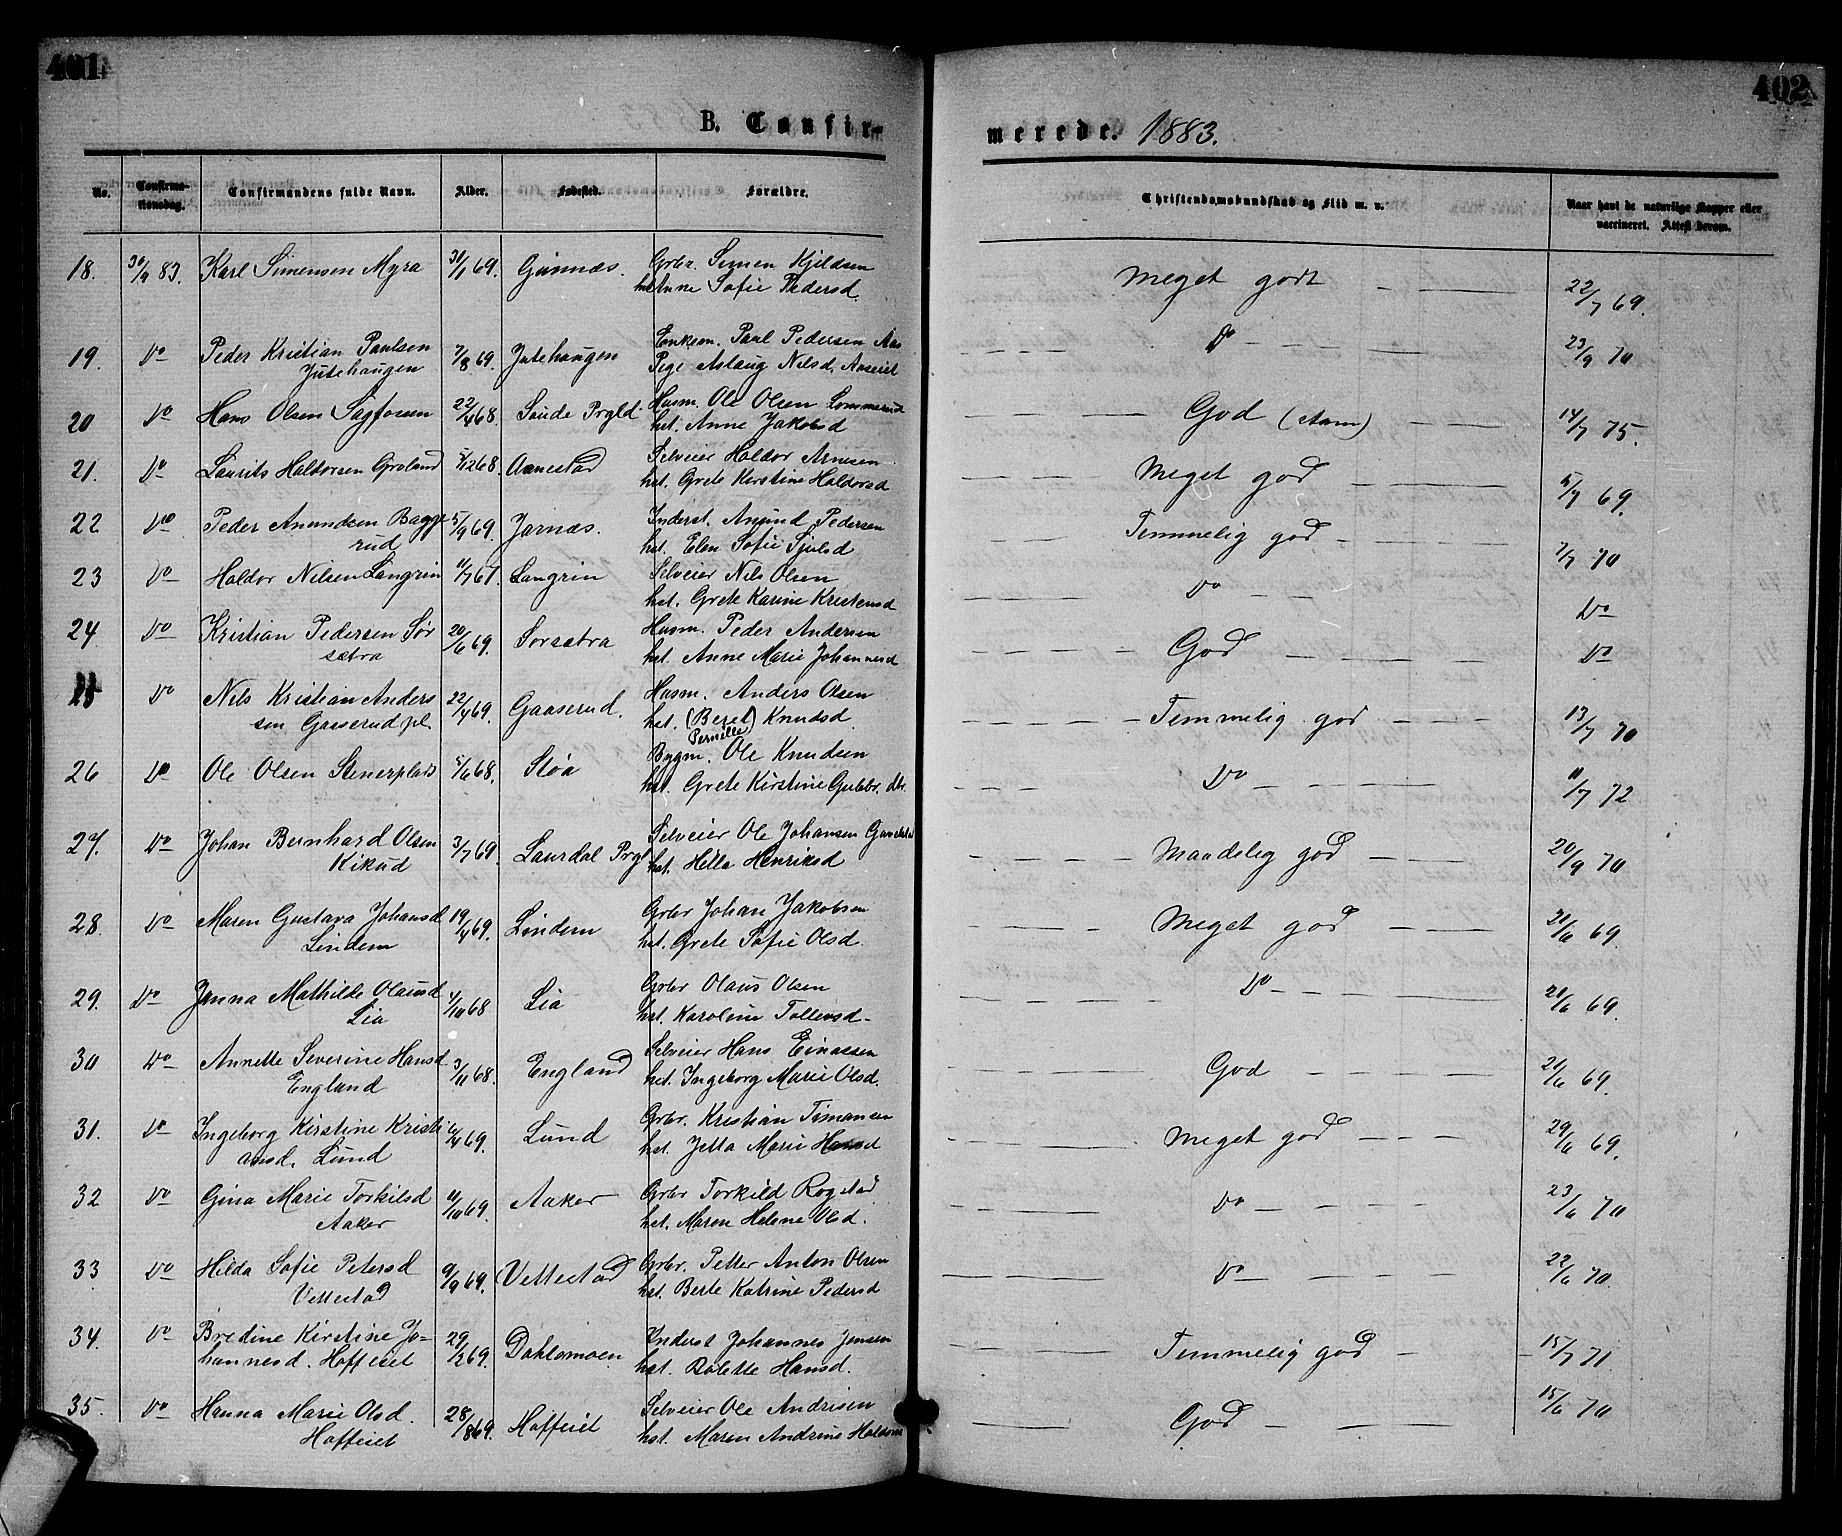 401
402
B. Confir-
merede. 1883.
No.
Confirma-
tionsdag.
Confirmandens fulde Navn.
Alder.
Fødested.
Forældre.
Christendomskundskab og Flid m. v.
Naar havt de naturlige Kopper eller
vaccineret. Attest derom.
18. 30/9 83. Karl Simensen Myra 30/1 69. Gunnæs. Grbr. Simen Kjeldsen
Anne Sofie Pedersd.
Meget godt 22/7 69.
19. Do Peder Kristian Paulsen 7/8 69. Jutehaugen Enkem. Paul Pedersen Aas
Jutehaugen Pige Aslaug Nilsd. Aaseiet
Do 23/9 70
20 Do Hans Olsen Sagfossen 22/4 68. Saude Prgld. Husm. Ole Olsen Lommerud
hst. Anne Jakobsd
God 14/7 75.
21. Do Laurits Haldorsen Groland 5/12 68. Aanestad Selveier Haldor Arnesen
hst. Grete Kirstine Haldorsd
Meget god 5/7 69.
22 Do Peder Anundsen Bagge 5/9 69. Jarnæs. Inderst. Anund Pedersen
rud hst. Elen Sofie Sjulsd
Temmelig god 7/7 70
23 Do Haldor Nilsen Langrin 11/7 67 Langrin Selveier Nils Olsen
hst. Grete Karine Kristensd
Do Do
24. Do Kristian Pedersen Sør 20/6 69. Sorsætra Husm. Peder Andersen
sætra hst. Anne Marie Johannesd
God Do
25 Do Nils Kristian Anders 22/4 69. Gaaserud. Husm. Anders Olsen
sen Gaaserud pl. hst. (Beret) Knudsd
Pernille
Temmelig god 13/7 70
26 Do Ole Olsen Stenerplads 5/6 68. Støa Bygm. Ole Knudsen
hst. Grete Kirstine Gulbr. dtr.
Do 11/7 72
27. Do Johan Bernhard Olsen 3/7 69. Laurdal Prgl Selveier Ole Johansen
Kikud hst. Hella Henriksd
Maadelig god 20/9 70
28. Do Maren Gustava Johansd 19/4 69. Lindem Grbr Johan Jakobsen
Lindem hst. Grete Sofie Olsd.
Meget god 20/6 69.
29. Do Janna Mathilde Olausd 4/10 68 Lia Grbr Olaus Olsen
Lia hst. Karoline Tollevsd-
Do 20/6 69.
30 Do Annette Severine Hansd 3/11 68. England Selveier Hans Einassen
England hst. Ingeborg Marie Olsd.
God 20/6 69.
31. Do Ingeborg Kirstine Kristi 6/4 69. Lund Grbr. Kristian Timansen
ansd. Lund hst. Jetta Marie Hansd
Meget god 29/6 69.
32 Do Gina Marie Torkilsd 11/10 69. Aaker Grbr Torkild Rogstad
Aaker hst. Maren Helene Olsd.
Do 23/6 70
33 Do Hilda Sofie Petersd 9/9 69. Vettestad Grbr. Petter Anton Olsen
Vettestad hst. Berte Katrine Pedersd
Do 22/6 70.
34. Do Bredine Kirstine Jo- 29/2 69. Dahlsmoen Inderst Johannes Jensen
hannesd. Hoffeiet hst. Bolette Hansd.
Temmelig god 15/7 71
35. Do Hanna Marie Olsd. 28/8 69. Hoffeiet Selveier Ole Andrisen
Hoffeiet hst. Maren Andrine
God 15/6 70